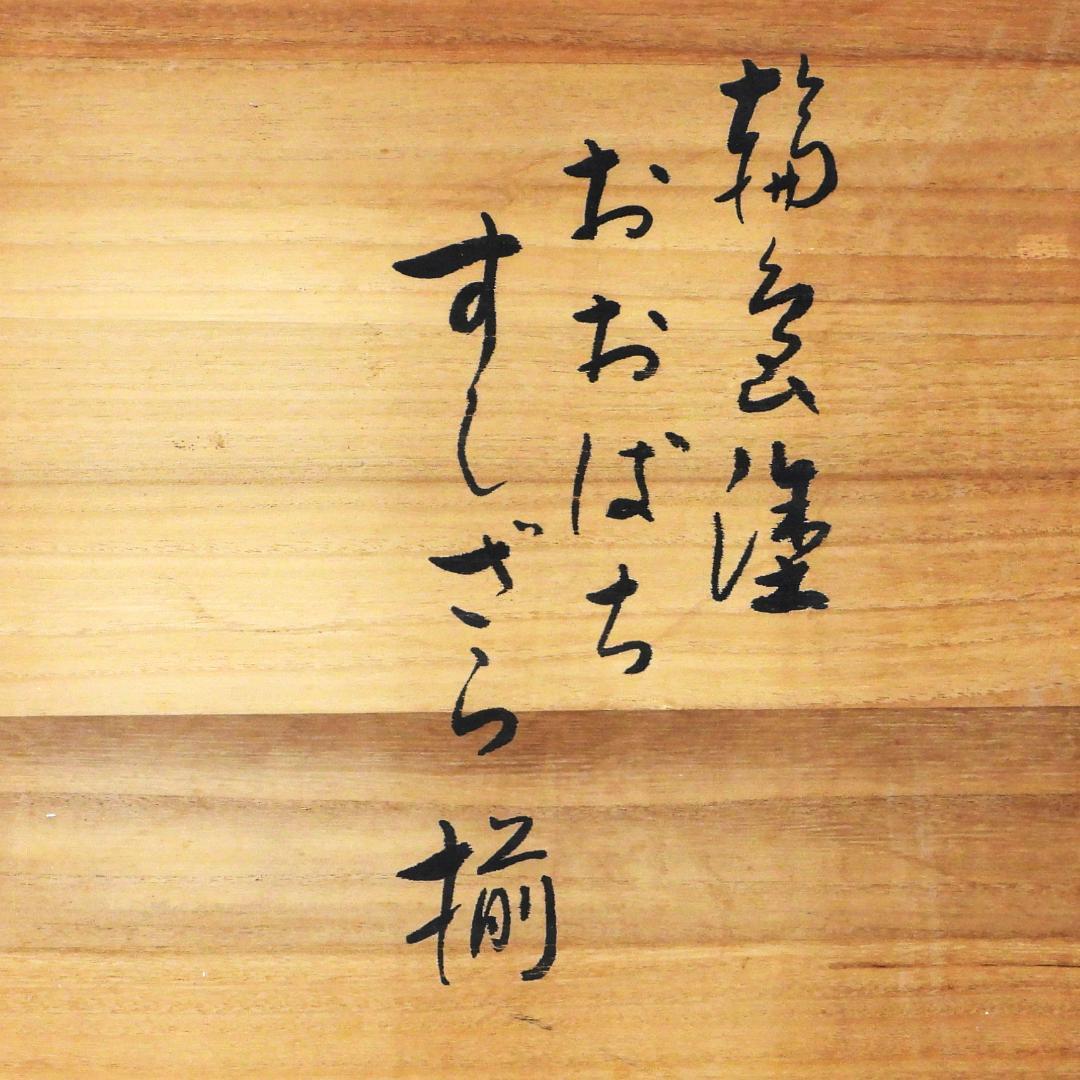 輪島塗
おおばち
すしざら 揃